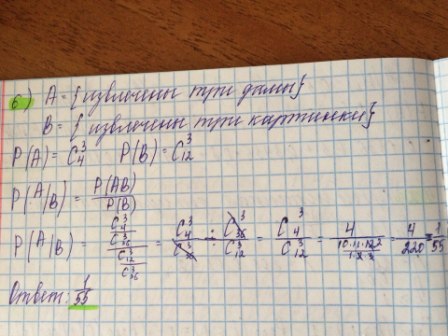 6) A = {извлечены три дамы}
B = {извлечены три картинки}
P(A) = C₄³ P(B) = C₁₂³
P(A|B) = P(AB) / P(B)
P(A|B) = (C₄³ / C₃₆³) / (C₁₂³ / C₃₆³) = C₄³ / C₃₆³ ÷ C₃₆³ / C₁₂³ = C₄³ / C₁₂³ = 4 / (10·11·12 2 / 1·2·3) = 4/220 = 1/55
Ответ: 1/55